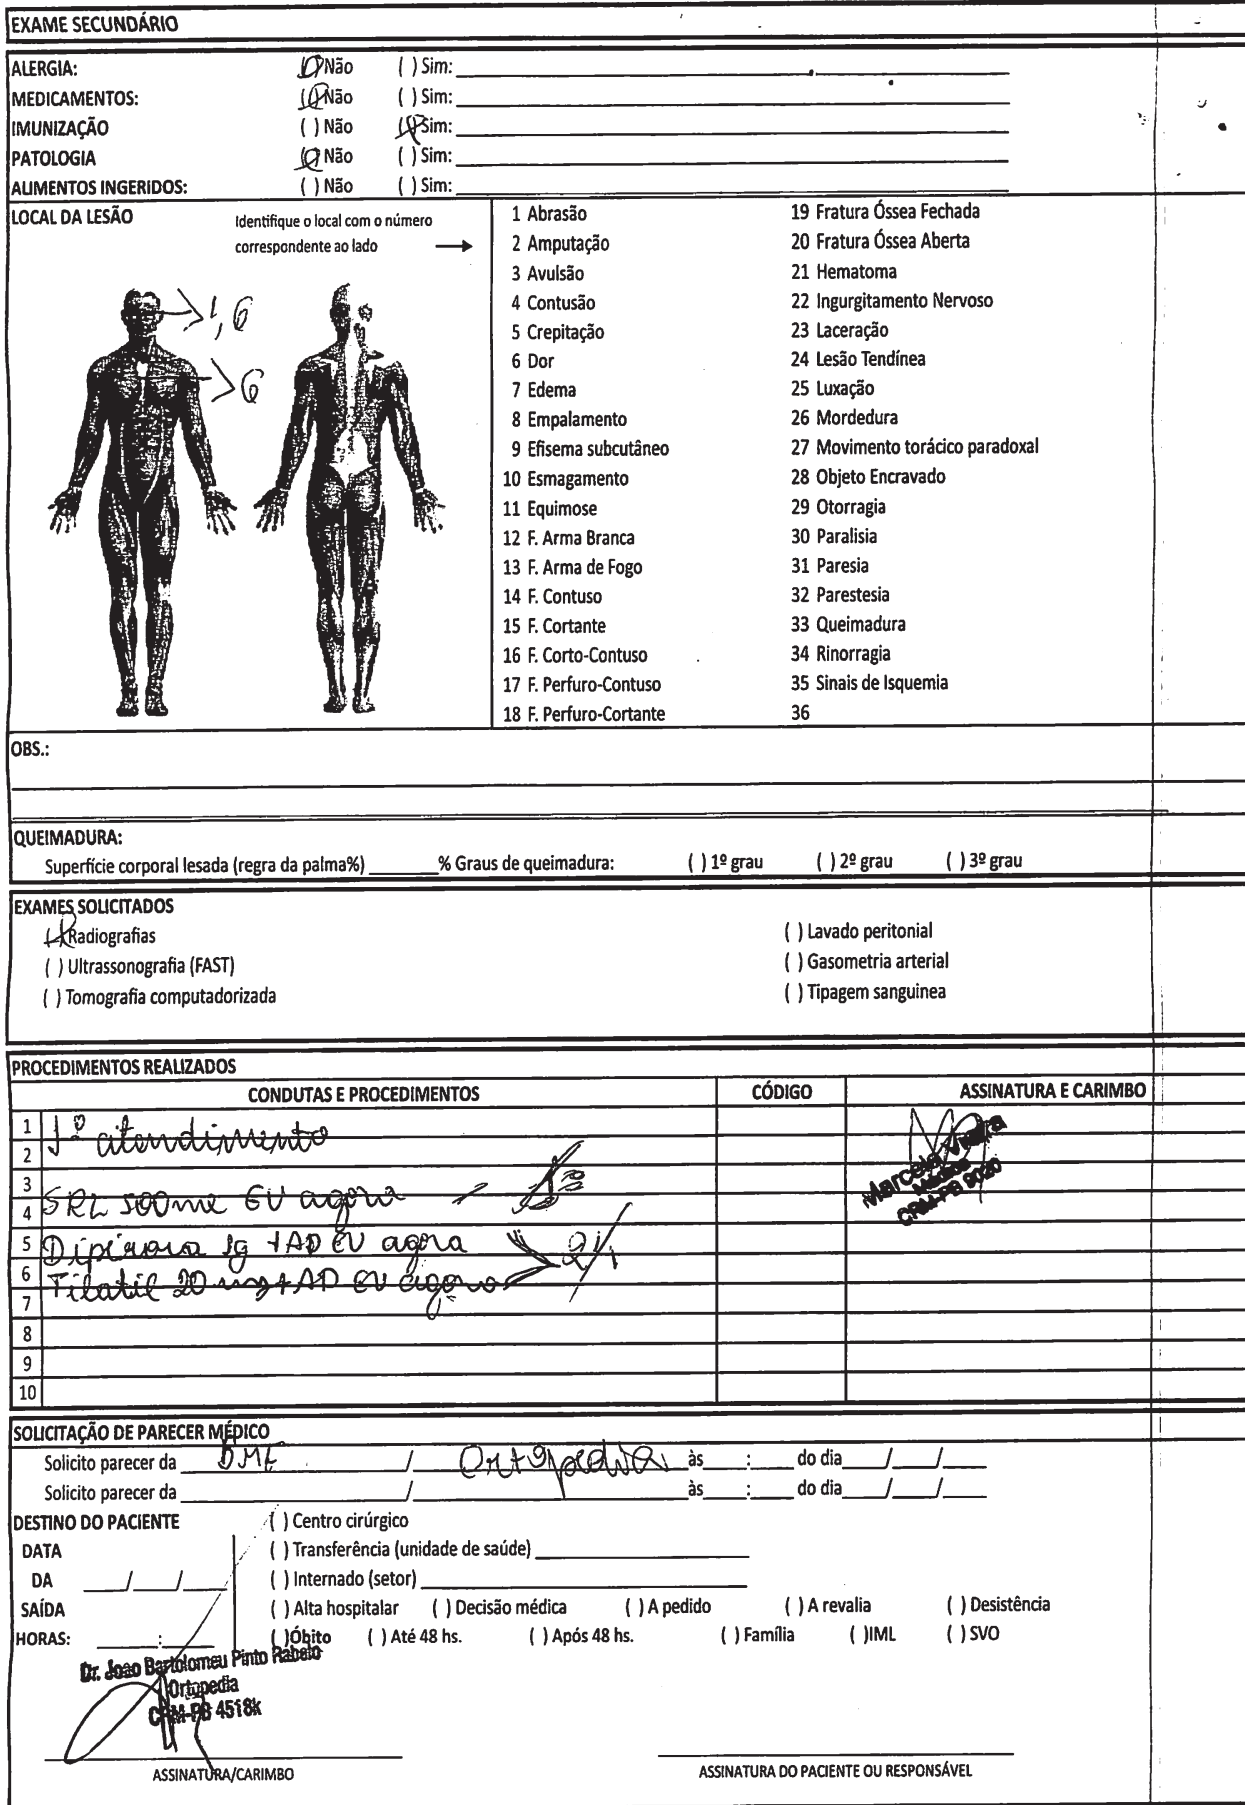 EXAME SECUNDÁRIO
ALERGIA: (X) Não ( ) Sim:
MEDICAMENTOS: (X) Não ( ) Sim:
IMUNIZAÇÃO ( ) Não (X) Sim:
PATOLOGIA (X) Não ( ) Sim:
ALIMENTOS INGERIDOS: ( ) Não ( ) Sim:
LOCAL DA LESÃO
Identifique o local com o número
correspondente ao lado
1, 6
6
1 Abrasão
2 Amputação
3 Avulsão
4 Contusão
5 Crepitação
6 Dor
7 Edema
8 Empalamento
9 Efisema subcutâneo
10 Esmagamento
11 Equimose
12 F. Arma Branca
13 F. Arma de Fogo
14 F. Contuso
15 F. Cortante
16 F. Corto-Contuso
17 F. Perfuro-Contuso
18 F. Perfuro-Cortante
19 Fratura Óssea Fechada
20 Fratura Óssea Aberta
21 Hematoma
22 Ingurgitamento Nervoso
23 Laceração
24 Lesão Tendínea
25 Luxação
26 Mordedura
27 Movimento torácico paradoxal
28 Objeto Encravado
29 Otorragia
30 Paralisia
31 Paresia
32 Parestesia
33 Queimadura
34 Rinorragia
35 Sinais de Isquemia
36
OBS.:
QUEIMADURA:
Superfície corporal lesada (regra da palma%) ______% Graus de queimadura: ( ) 1º grau ( ) 2º grau ( ) 3º grau
EXAMES SOLICITADOS
(X) Radiografias
( ) Ultrassonografia (FAST)
( ) Tomografia computadorizada
( ) Lavado peritonial
( ) Gasometria arterial
( ) Tipagem sanguinea
PROCEDIMENTOS REALIZADOS
CONDUTAS E PROCEDIMENTOS CÓDIGO ASSINATURA E CARIMBO
1
1º atendimento
2
3
SRL 500ml EV agora
4
5
Dipirona 1g + AD EV agora
6
Tilatil 20 mg + AD EV agora
7
8
9
10
Marcela Vieira
Médica
CRM-PB 9020
SOLICITAÇÃO DE PARECER MÉDICO
Solicito parecer da BMF / Ortopedia às ___:___ do dia ___/___/___
Solicito parecer da ______/______ às ___:___ do dia ___/___/___
DESTINO DO PACIENTE
DATA
DA ___/___/___
SAÍDA
HORAS: ___:___
( ) Centro cirúrgico
( ) Transferência (unidade de saúde)
( ) Internado (setor)
( ) Alta hospitalar ( ) Decisão médica ( ) A pedido ( ) A revalia ( ) Desistência
( )Óbito ( ) Até 48 hs. ( ) Após 48 hs. ( ) Família ( )IML ( ) SVO
Dr. Joao Bartolomeu Pinto Rabelo
Ortopedia
CRM-PB 4518k
ASSINATURA/CARIMBO
ASSINATURA DO PACIENTE OU RESPONSÁVEL